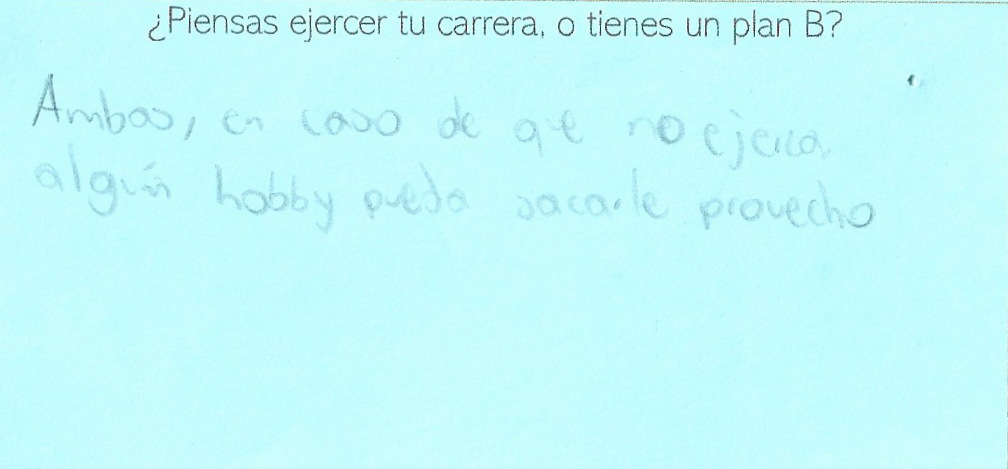 ¿Piensas ejercer tu carrera, o tienes un plan B?
Ambas, en caso de que no ejerza
algún hobby pueda sacarle provecho